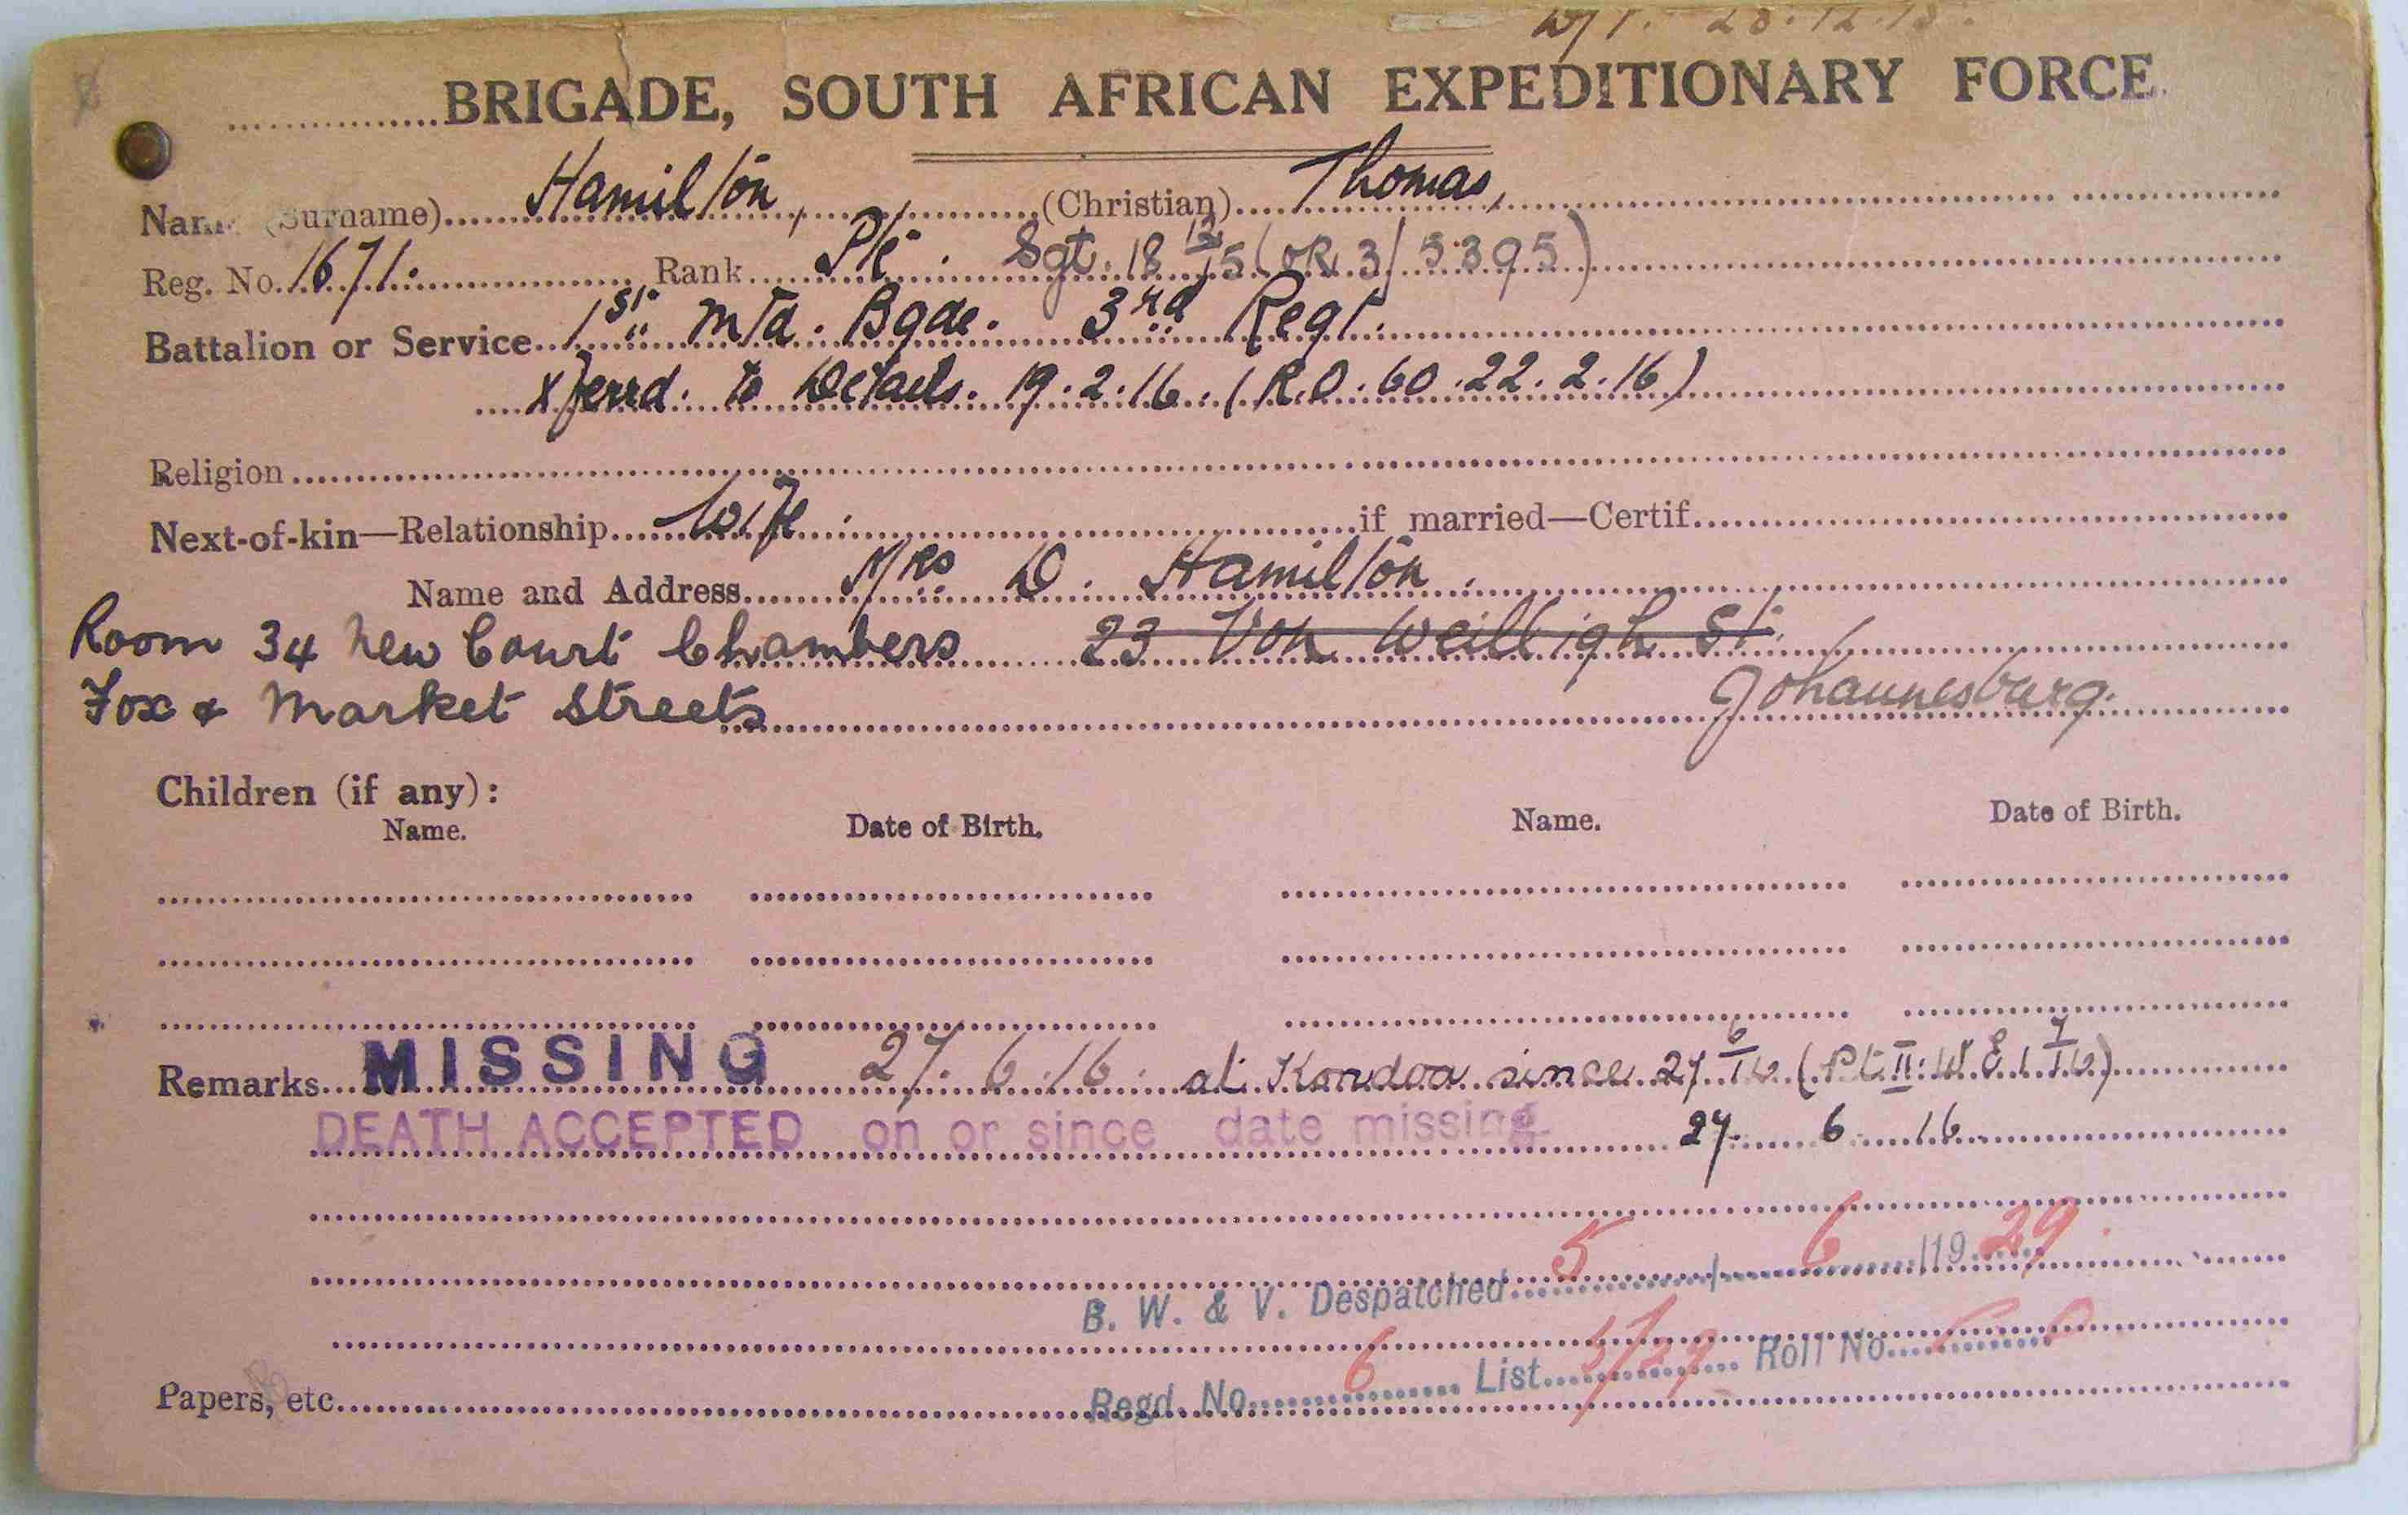 28.12.15.
BRIGADE, SOUTH AFRICAN EXPEDITIONARY FORCE.
Name (Surname) Hamilton, (Christian) Thomas,
Reg. No. 1671. Rank Pte. Sgt. 18 12/15 (OR 3/5395)
Battalion or Service 1st Mtd. Bgde. 3rd Regt.
Xferrd. to Details. 19.2.16. (R.O. 60. 22.2.16)
Religion
Next-of-kin—Relationship Wife. if married—Certif.
Name and Address Mrs D. Hamilton.
Room 34 New Court Chambers 23 Von Weilligh St.
Fox & Market Streets Johannesburg.
Children (if any):
Name. Date of Birth. Name. Date of Birth.
Remarks MISSING 27.6.16. at Kondoa since 27 6/16 (Pt II. W.E. 1 7/16)
DEATH ACCEPTED on or since date missing 27. 6. 16.
B. W. & V. Despatched 5 / 6 /1929.
Regd. No. 6 List 5/29 Roll No.
Papers, etc.